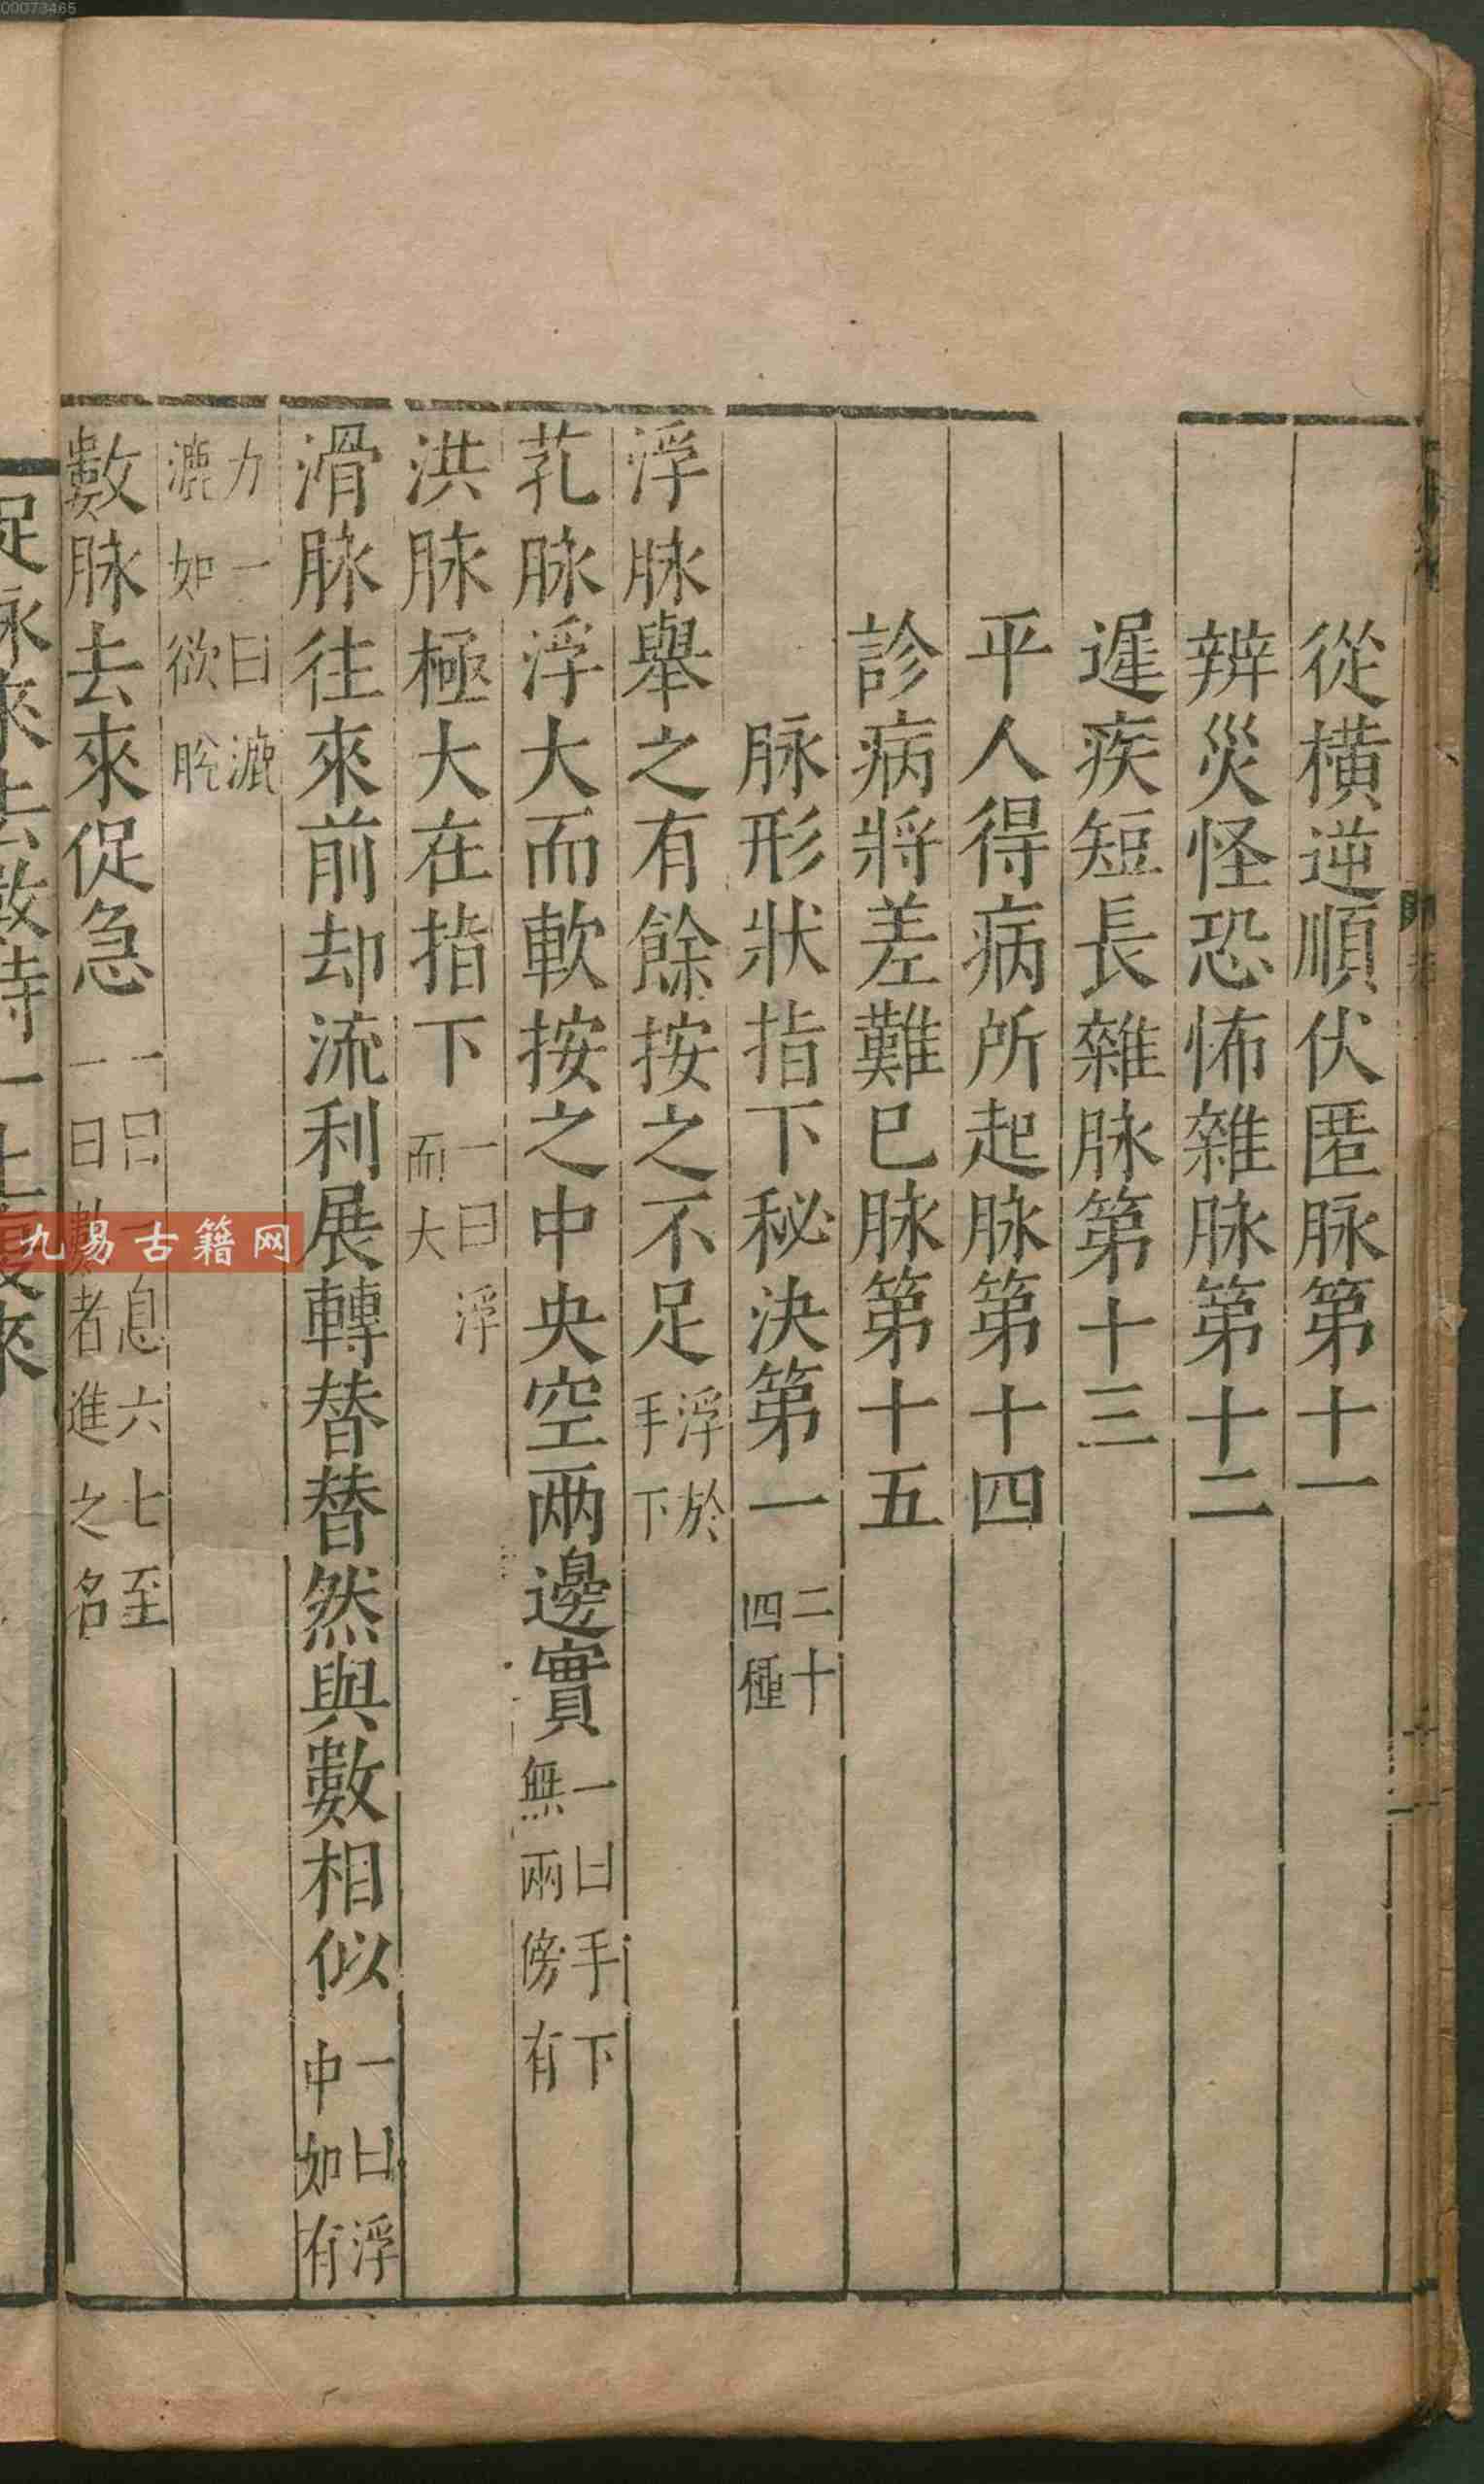 00073465
從橫逆順伏匿脉第十一
辨災怪恐怖雜脉第十二
遲疾短長雜脉第十三
平人得病所起脉第十四
診病將差難已脉第十五
脉形狀指下秘決第一 二十四種
浮脉舉之有餘按之不足 浮於手下
芤脉浮大而軟按之中央空兩邊實 一曰手下無兩傍有
洪脉極大在指下 一曰浮而大
滑脉往來前却流利展轉替替然與數相似 一曰浮中如有
力一曰漉漉如欲脫
數脉去來促急 一曰一息六七至一曰數者進之名
促脉來去數時一止復來
九易古籍网